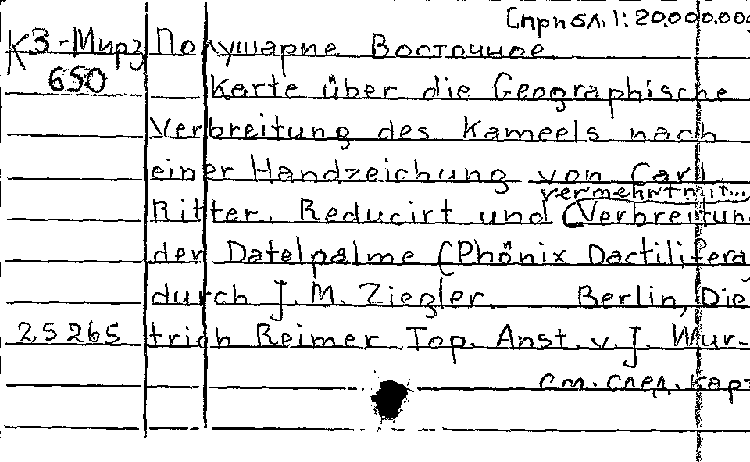 [Прибл. 1:20.000.000
КЗ-Мирз Полушарие Восточное
650 Karte über die Geographische
Verbreitung des Kameels nach
einer Handzeichung von Carl
vermehrt mit...
Ritter. Reducirt und (Verbreitung
der Datelpalme (Phönix Dactilifera
durch J. M. Ziegler. Berlin, Die-
25265 trich Reimer Top. Anst. v. J. Wur-
см. след. карт